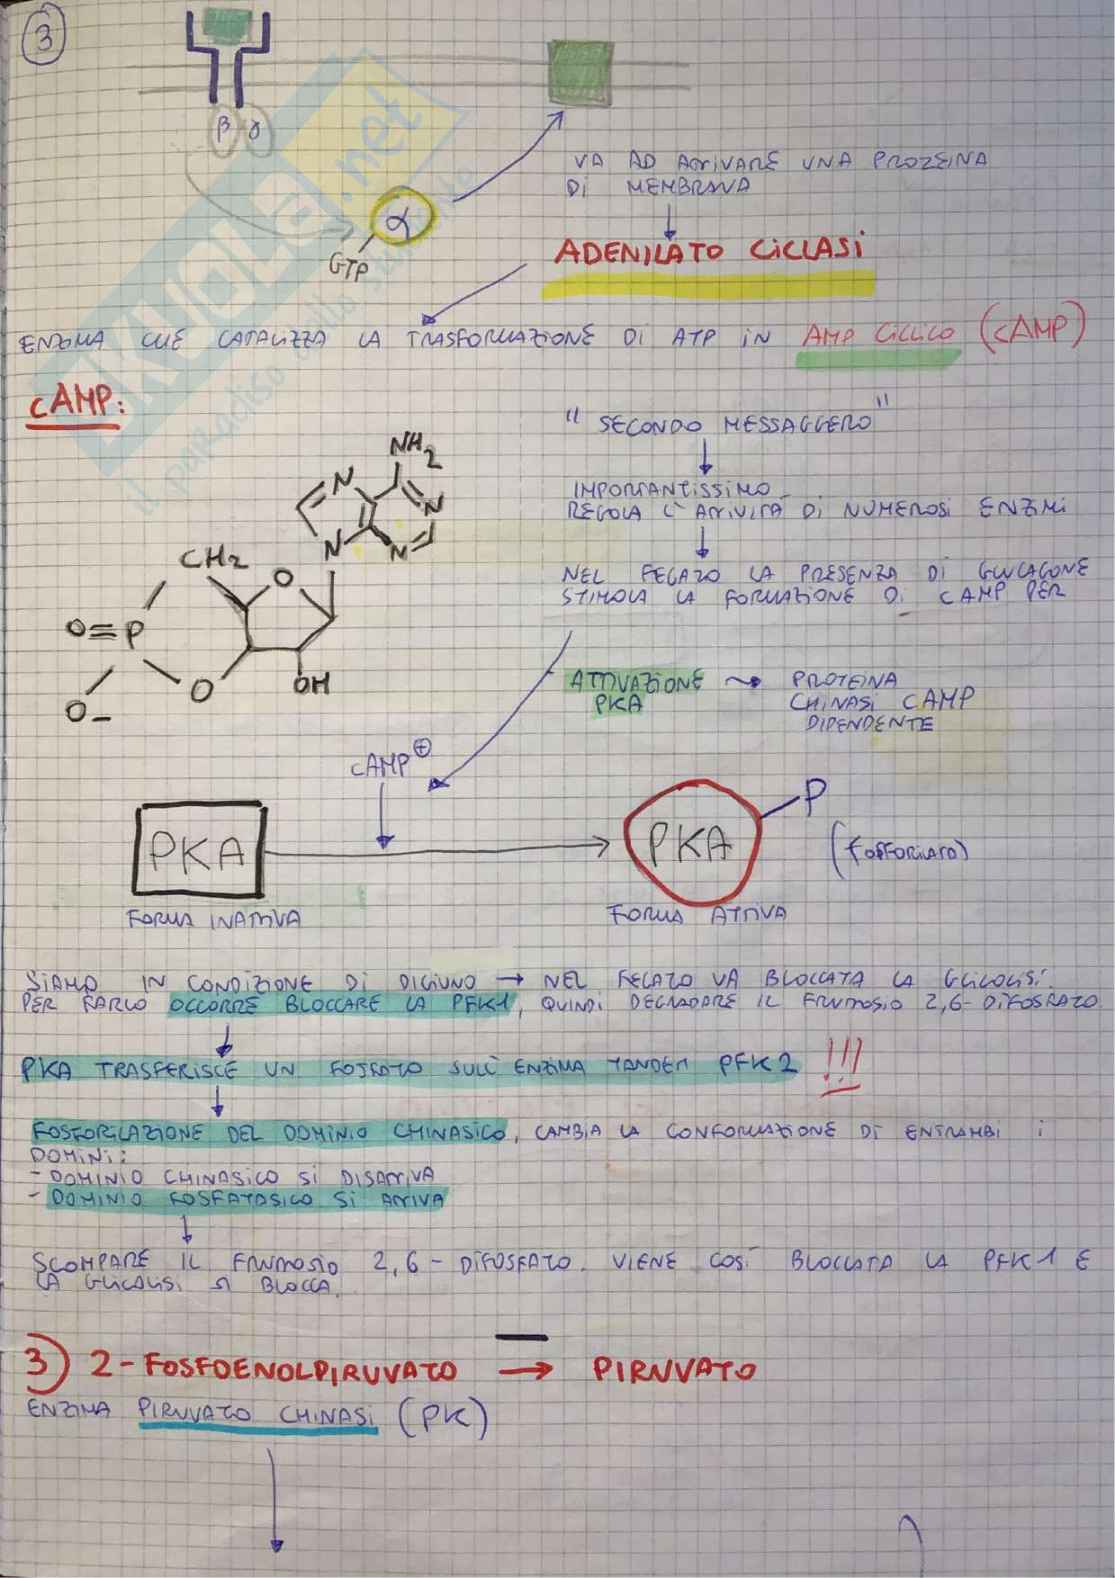 3
β γ
α
GTP
VA AD ATTIVARE UNA PROTEINA
DI MEMBRANA
ADENILATO CICLASI
ENZIMA CHE CATALIZZA LA TRASFORMAZIONE DI ATP IN AMP CICLICO (cAMP)
cAMP:
"SECONDO MESSAGGERO"
IMPORTANTISSIMO
REGOLA L'ATTIVITÀ DI NUMEROSI ENZIMI
NEL FEGATO LA PRESENZA DI GLUCAGONE
STIMOLA LA FORMAZIONE DI cAMP PER
NH2
N
N
N
N
CH2
O
O=P
O
OH
O-
ATTIVAZIONE PROTEINA
PKA CHINASI CAMP
DIPENDENTE
cAMP +
PKA
PKA
P
(FOSFORILATO)
FORMA INATTIVA
FORMA ATTIVA
SIAMO IN CONDIZIONE DI DIGIUNO → NEL FEGATO VA BLOCCATA LA GLICOLISI.
PER FARLO OCCORRE BLOCCARE LA PFK1, QUINDI DEGRADARE IL FRUTTOSIO 2,6-DIFOSFATO.
PKA TRASFERISCE UN FOSFATO SULL'ENZIMA TANDEM PFK2 !!!
FOSFORILAZIONE DEL DOMINIO CHINASICO, CAMBIA LA CONFORMAZIONE DI ENTRAMBI I
DOMINI:
- DOMINIO CHINASICO SI DISATTIVA
- DOMINIO FOSFATASICO SI ATTIVA
SCOMPARE IL FRUTTOSIO 2,6-DIFOSFATO. VIENE COSÌ BLOCCATA LA PFK1 E
LA GLICOLISI SI BLOCCA.
3) 2-FOSFOENOLPIRUVATO → PIRUVATO
ENZIMA PIRUVATO CHINASI (PK)
SKUOLA.net
il paradiso dello studente